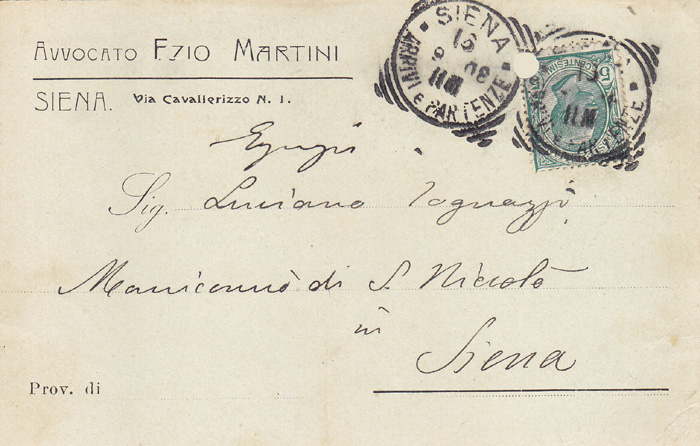 AVVOCATO EZIO MARTINI
SIENA. Via Cavallerizzo N. 1.
SIENA
ARRIVI E PARTENZE
CENTESIMI
Egregio
Sig. Luciano Tognazzi
Manicomio di S. Niccolò
in
Siena
Prov. di